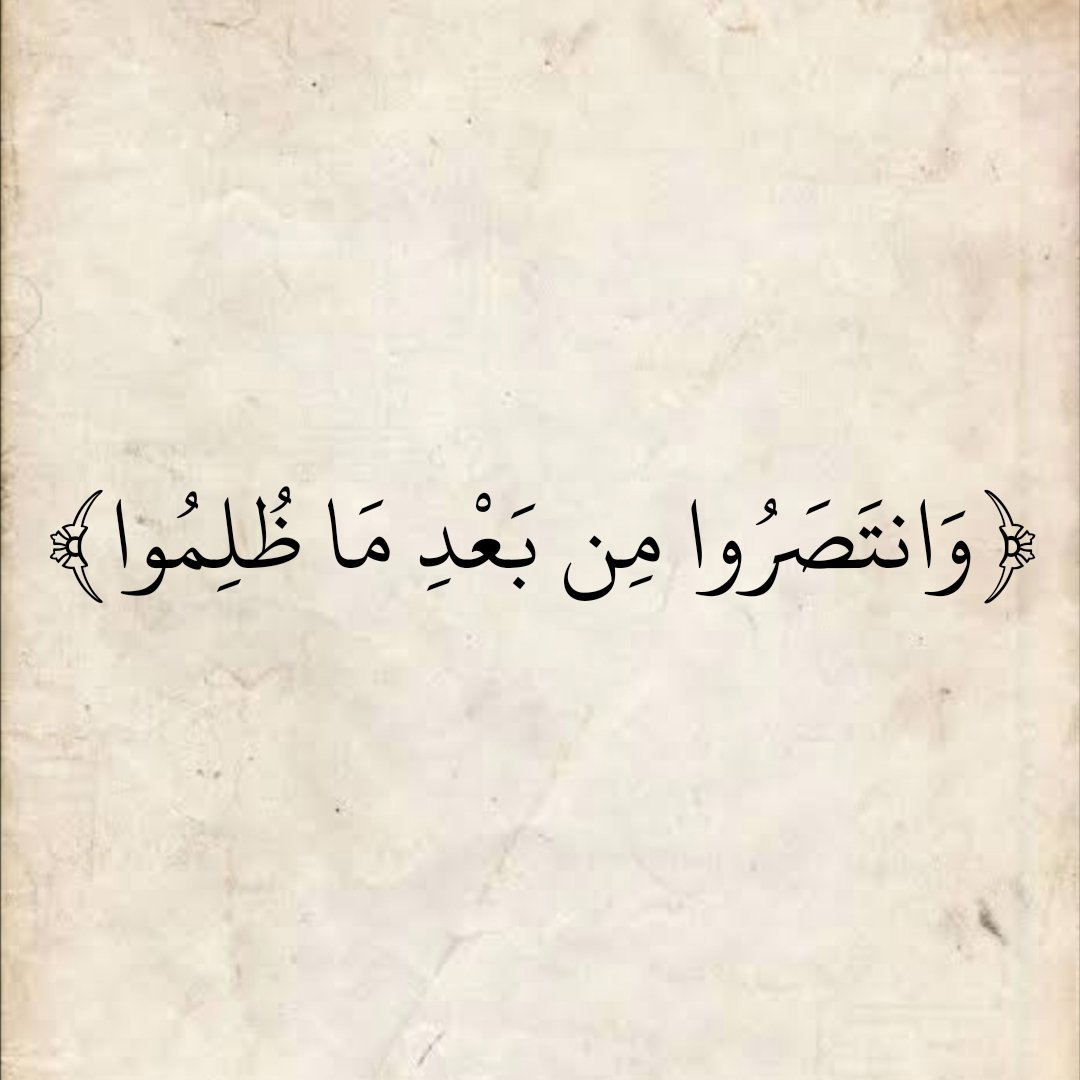 ﴿وَانتَصَرُوا مِن بَعْدِ مَا ظُلِمُوا﴾